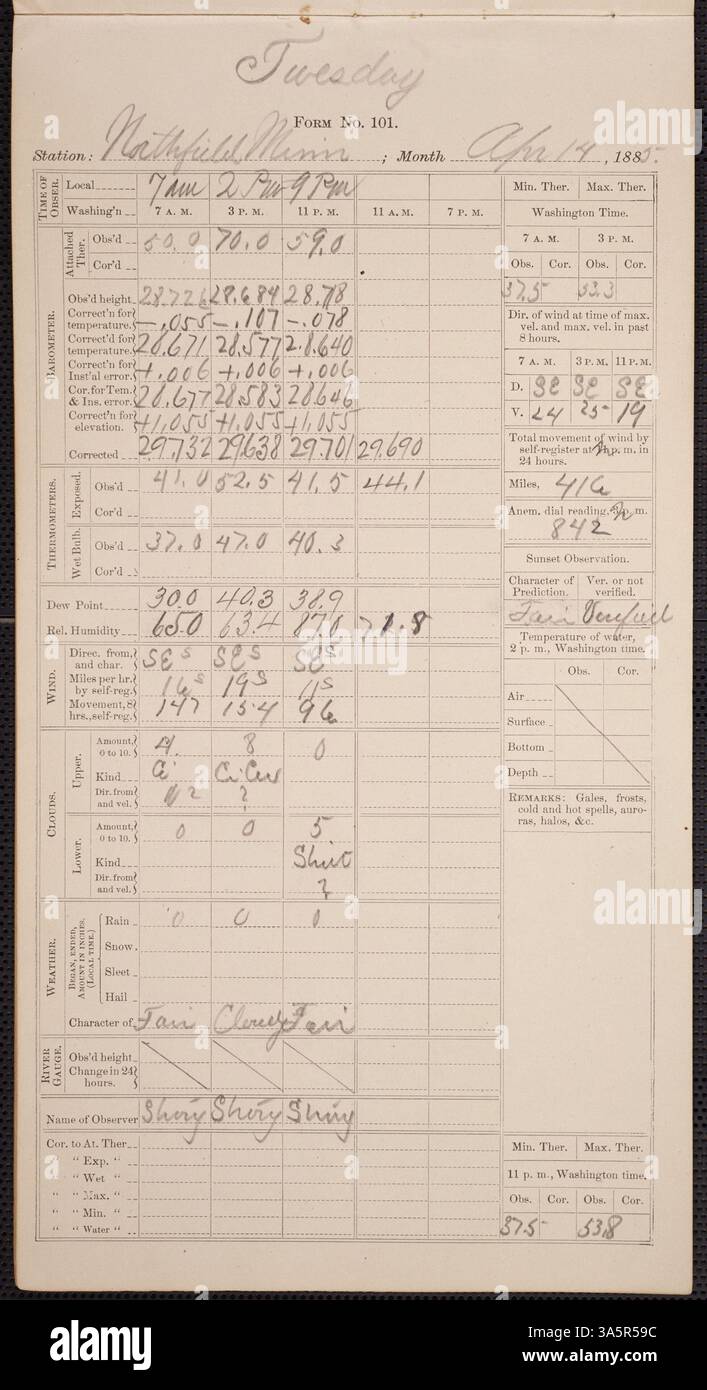 Tuesday
FORM NO. 101.
Station: Northfield, Minn ; Month Apr 14 , 1885.
TIME OF OBSER. Local 7 am 2 Pm 9 Pm
Washing'n 7 A. M. 3 P. M. 11 P. M. 11 A. M. 7 P. M.
BAROMETER.
Attached Ther. Obs'd 50.0 70.0 59.0
Cor'd
Obs'd height 28.726 28.684 28.718
Correct'n for temperature. -.055 -.107 -.078
Correct'd for temperature. 28.671 28.577 28.640
Correct'n for Inst'al error. +.006 +.006 +.006
Cor. for Tem. & Ins. error. 28.677 28.583 28.646
Correct'n for elevation. +1.055 +1.055 +1.055
Corrected 29.732 29.638 29.701 29.690
THERMOMETERS.
Exposed. Obs'd 41.0 52.5 41.5 44.1
Cor'd
Wet Bulb. Obs'd 37.0 47.0 40.3
Cor'd
Dew Point 30.0 40.3 38.9
Rel. Humidity 65.0 63.4 87.0 71.8
WIND.
Direc. from, and char. SE s SE s SE s
Miles per hr. by self-reg. 16 s 19 s 11 s
Movement, 8 hrs., self-reg. 147 154 96
CLOUDS.
Upper. Amount, 0 to 10. 4 8 0
Kind Ci Ci Cu
Dir. from and vel. ?
Lower. Amount, 0 to 10. 0 0 5
Kind
Dir. from and vel. ?
WEATHER.
BEGAN, ENDED, AMOUNT IN INCHES. (LOCAL TIME.)
Rain 0 0 0
Snow
Sleet
Hail
Character of Fair Cloudy Fair
RIVER GAUGE.
Obs'd height
Change in 24 hours.
Name of Observer
Cor. to At. Ther
" " Exp. "
" " Wet "
" " Max. "
" " Min. "
" " Water "
Min. Ther. Max. Ther.
Washington Time.
7 A. M. 3 P. M.
Obs. Cor. Obs. Cor.
37.5 53.3
Dir. of wind at time of max. vel. and max. vel. in past 8 hours.
7 A. M. 3 P. M. 11 P. M.
D. SE SE SE
V. 24 25 19
Total movement of wind by self-register at p. m. in 24 hours.
Miles, 416
Anem. dial reading, p. m.
842
Sunset Observation.
Character of Prediction. Ver. or not verified.
Fair Verified
Temperature of water, 2 p. m., Washington time.
Obs. Cor.
Air
Surface
Bottom
Depth
REMARKS: Gales, frosts, cold and hot spells, auroras, halos, &c.
Min. Ther. Max. Ther.
11 p. m., Washington time.
Obs. Cor. Obs. Cor.
37.5 53.8
alamy
alamy
alamy
alamy
alamy
Image ID: 3A5R59C
www.alamy.com